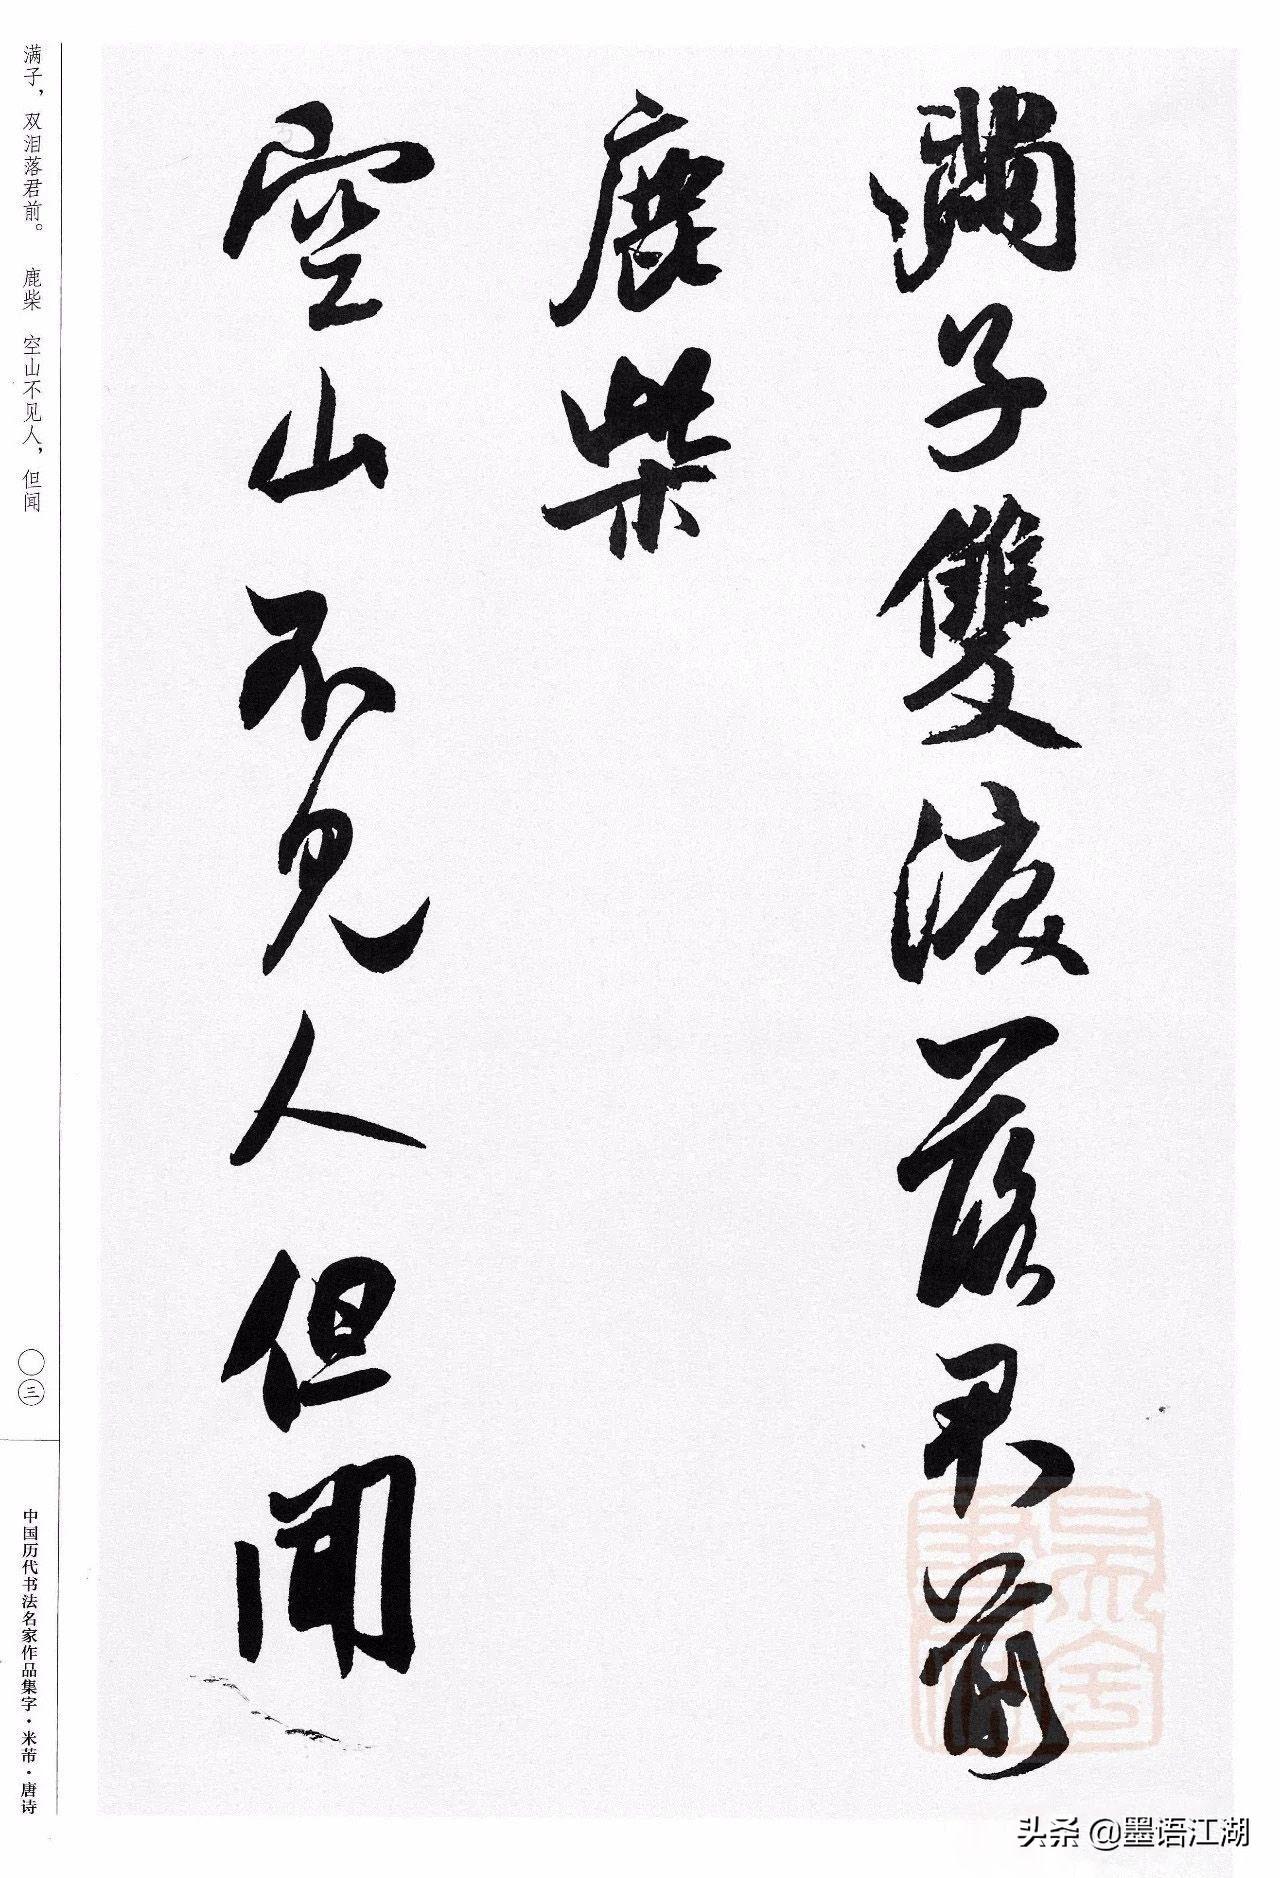 满子雙淚落君前
鹿柴
空山不见人但闻
满子，双泪落君前。 鹿柴 空山不见人，但闻
〇三
中国历代书法名家作品集字·米芾·唐诗
头条 @墨语江湖